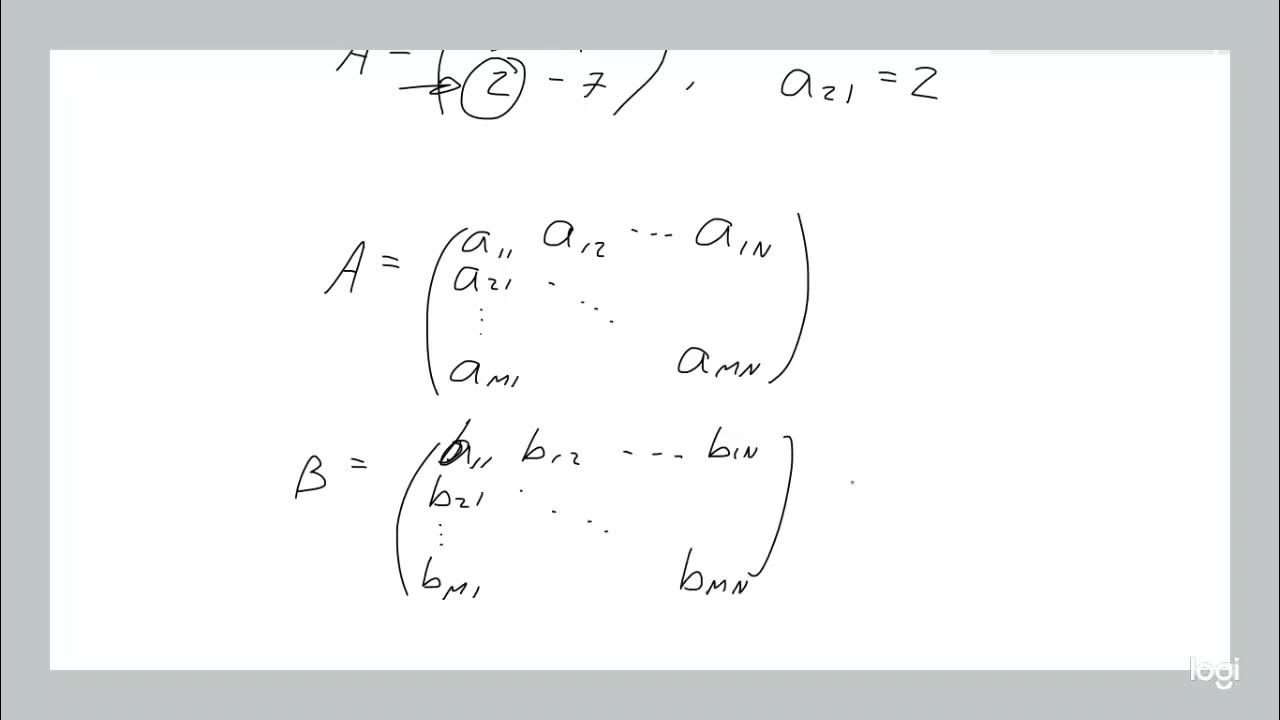 A = ( 2 - 7 ) , a21 = 2
A = ( a11 a12 ... a1N
a21 . ...
⋮
aM1 aMN )
B = ( b11 b12 ... b1N
b21 . ...
⋮
bM1 bMN )
logi